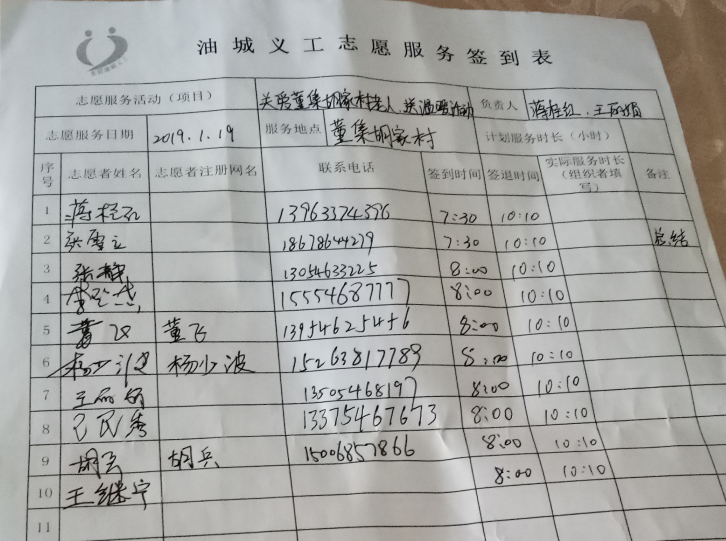 油城义工志愿服务签到表
志愿服务活动（项目） 关爱董集胡家村老人 送温暖活动 负责人 蒋桂红、王丽娟
志愿服务日期 2019.1.19 服务地点 董集胡家村 计划服务时长（小时）
序号 志愿者姓名 志愿者注册网名 联系电话 签到时间 签退时间 实际服务时长（组织者填写） 备注
1 蒋桂红 13963374376 7:30 10:10
2 张雪立 18678644279 7:30 10:10 总结
3 张静 13054633225 8:00 10:10
4 15554687777 8:00 10:10
5 董飞 董飞 13954625456 8:00 10:10
6 杨少波 杨少波 15263817789 8:00 10:10
7 王丽娟 13505468197 8:00 10:10
8 民秀 13375467673 8:00 10:10
9 胡兵 胡兵 15006857866 8:00 10:10
10 王继宁 8:00 10:10
11